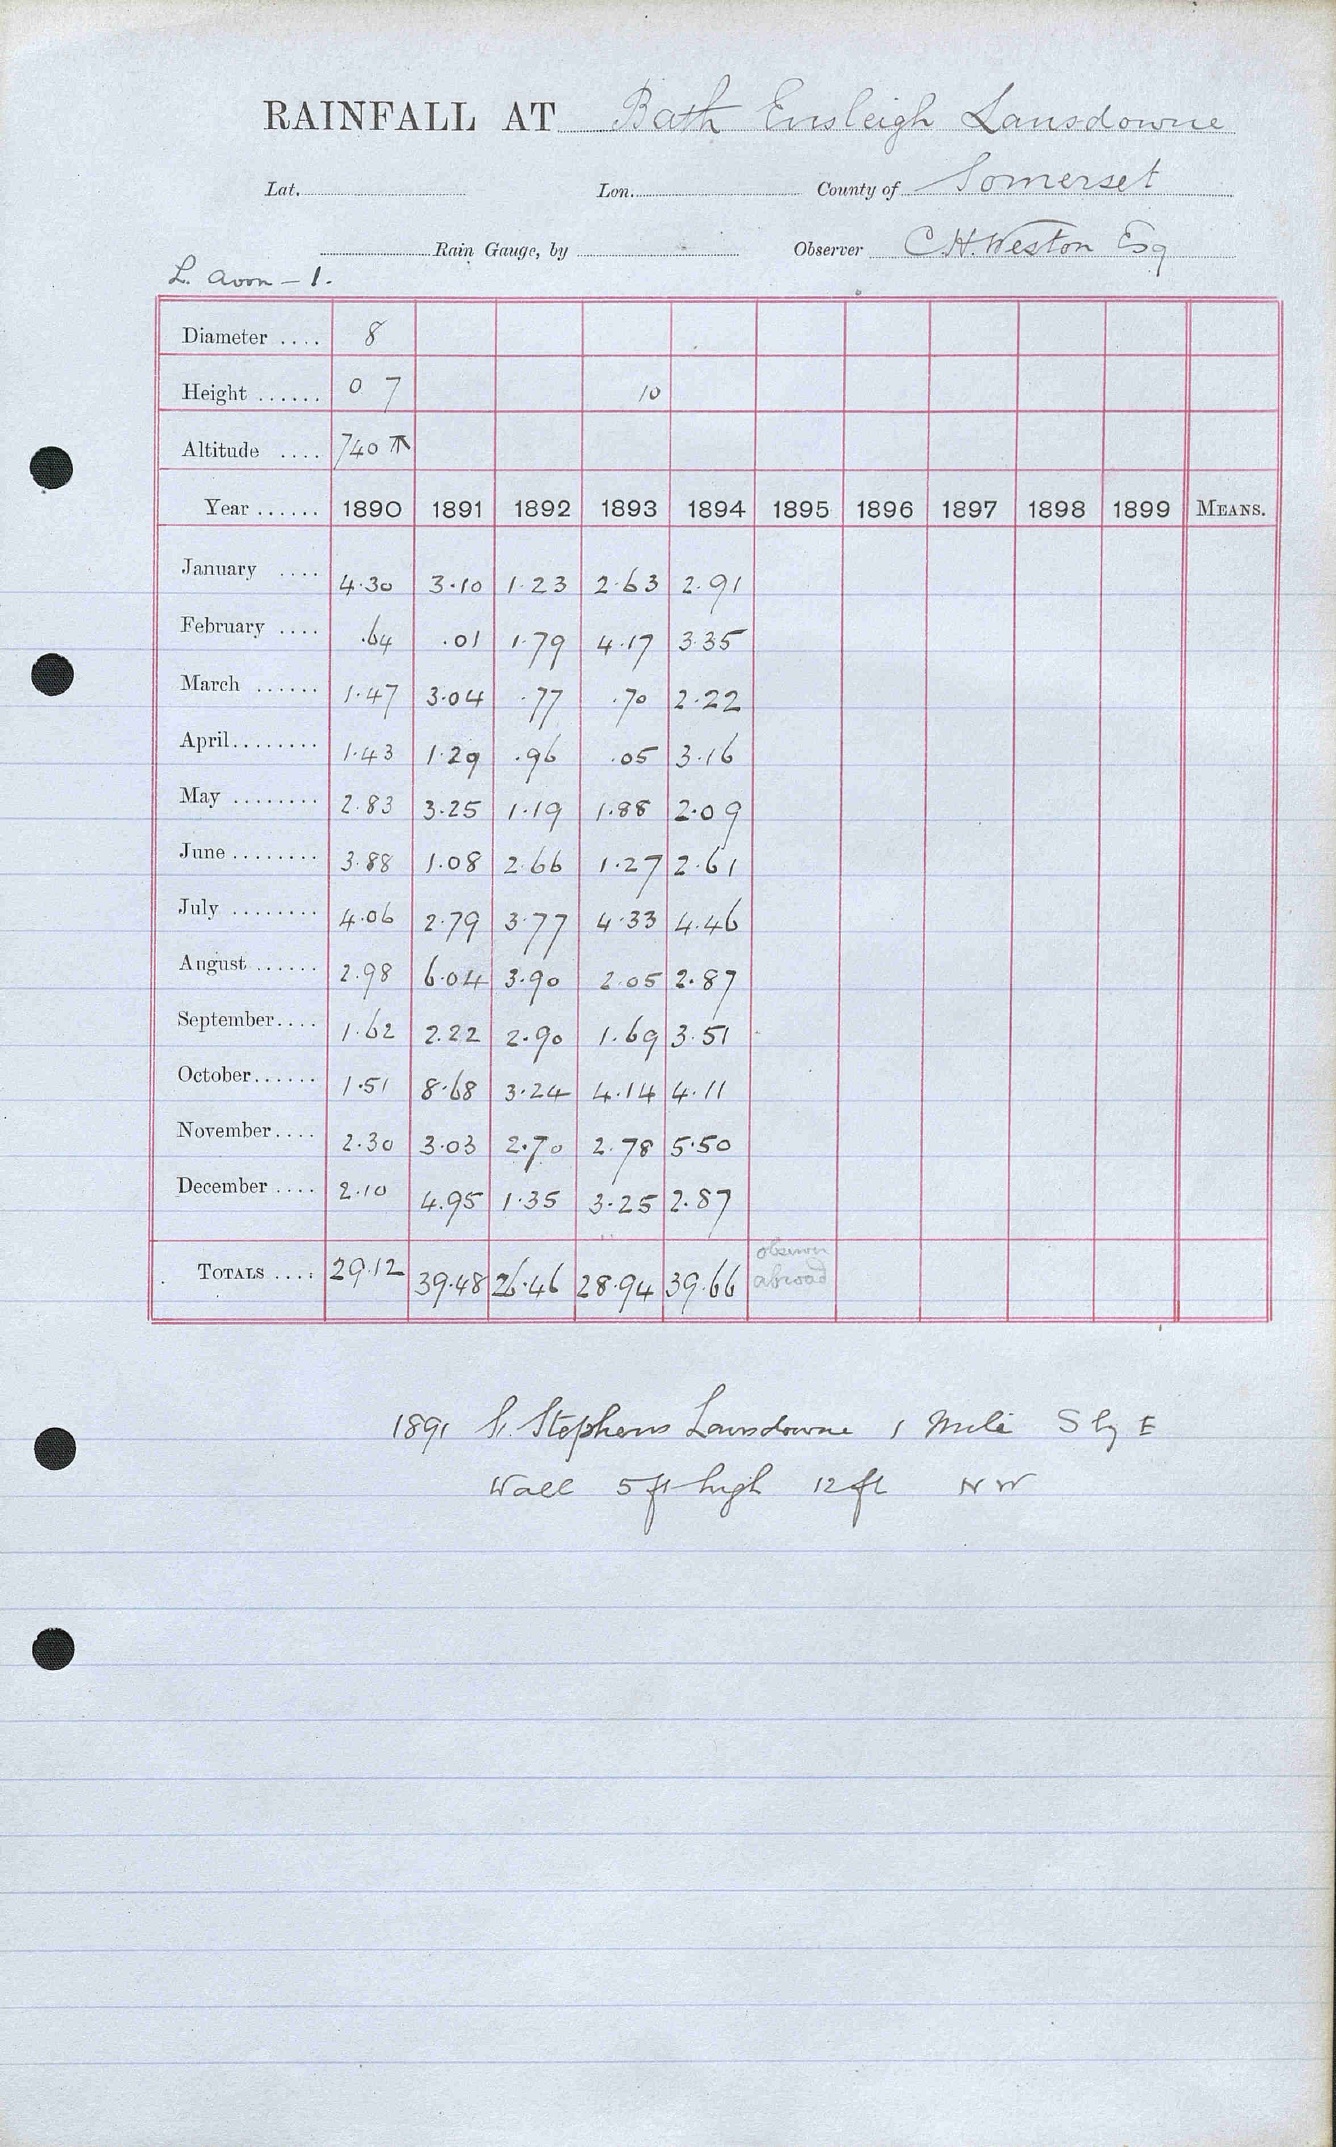 RAINFALL AT Bath Ensleigh Lansdowne
Lat. Lon. County of Somerset
Rain Gauge, by Observer C.H. Weston Esq
L. Avon - 1.
Diameter .... 8
Height ...... 0 7 10
Altitude .... 740 T
Year ...... 1890 1891 1892 1893 1894 1895 1896 1897 1898 1899 MEANS.
January .... 4.30 3.10 1.23 2.63 2.91
February .... .64 .01 1.79 4.17 3.35
March ...... 1.47 3.04 .77 .70 2.22
April........ 1.43 1.29 .96 .05 3.16
May ........ 2.83 3.25 1.19 1.88 2.09
June ........ 3.88 1.08 2.66 1.27 2.61
July ........ 4.06 2.79 3.77 4.33 4.46
August ...... 2.98 6.04 3.90 2.05 2.87
September.... 1.62 2.22 2.90 1.69 3.51
October...... 1.51 8.68 3.24 4.14 4.11
November.... 2.30 3.03 2.70 2.78 5.50
December .... 2.10 4.95 1.35 3.25 2.87
TOTALS .... 29.12 39.48 26.46 28.94 39.66 observer abroad
1891 St. Stephens Lansdowne 1 Mile S by E
Wall 5 ft high 12 ft NW